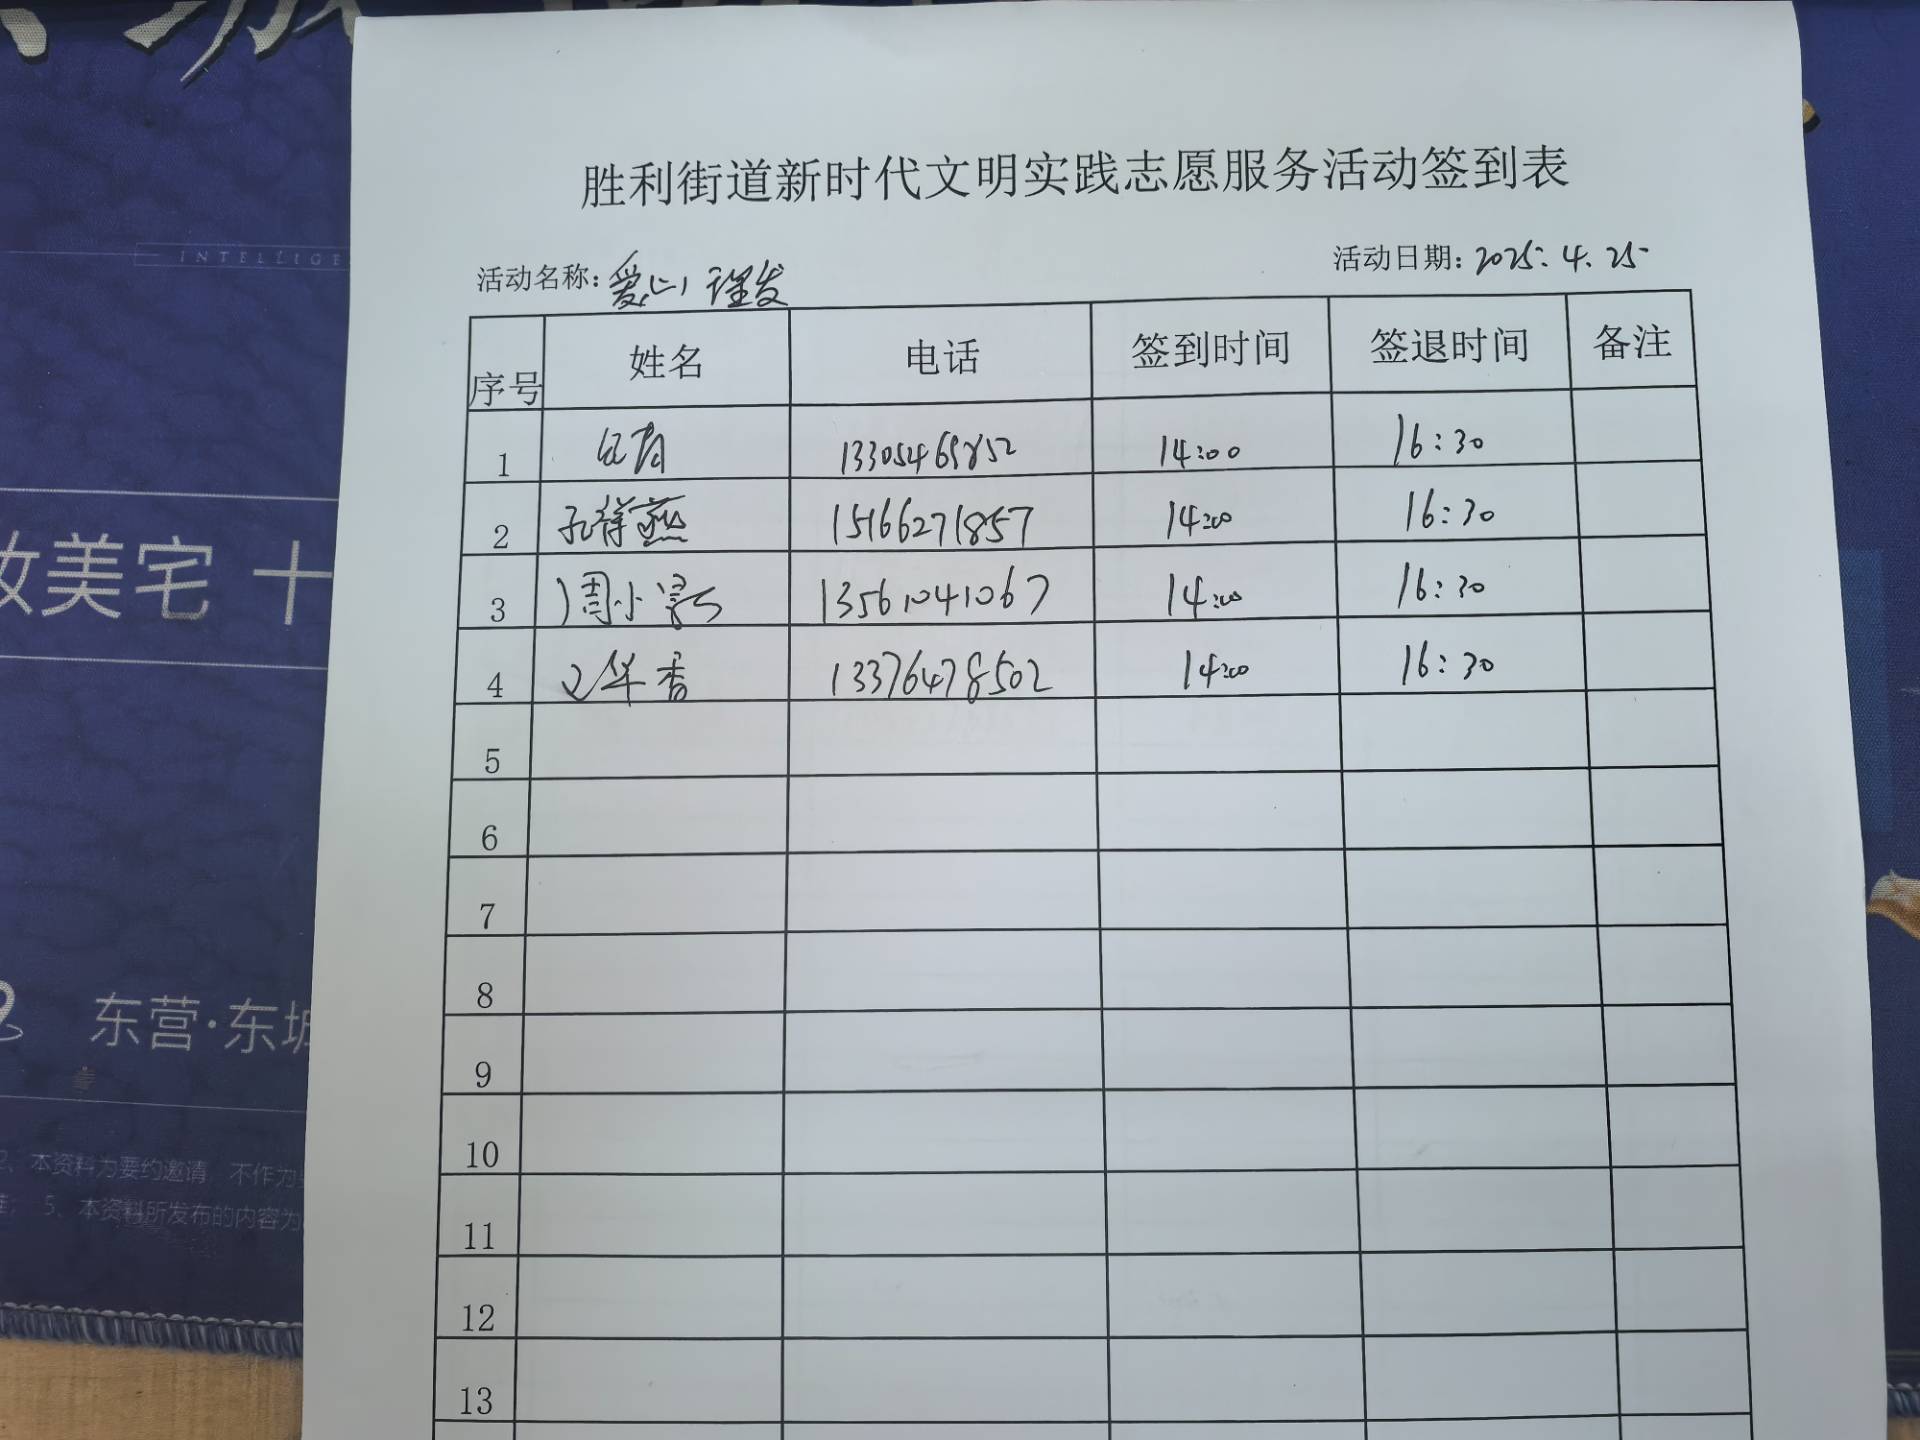 INTELLIGE
美宅 十
东营·东城
2、本资料为要约邀请,不作为
5、本资料所发布的内容为
胜利街道新时代文明实践志愿服务活动签到表
活动名称:爱心理发 活动日期:2025.4.25
序号 姓名 电话 签到时间 签退时间 备注
1 13305465852 14:00 16:30
2 孔祥燕 15166271857 14:00 16:30
3 周小 13561041067 14:00 16:30
4 华香 13376478502 14:00 16:30
5
6
7
8
9
10
11
12
13